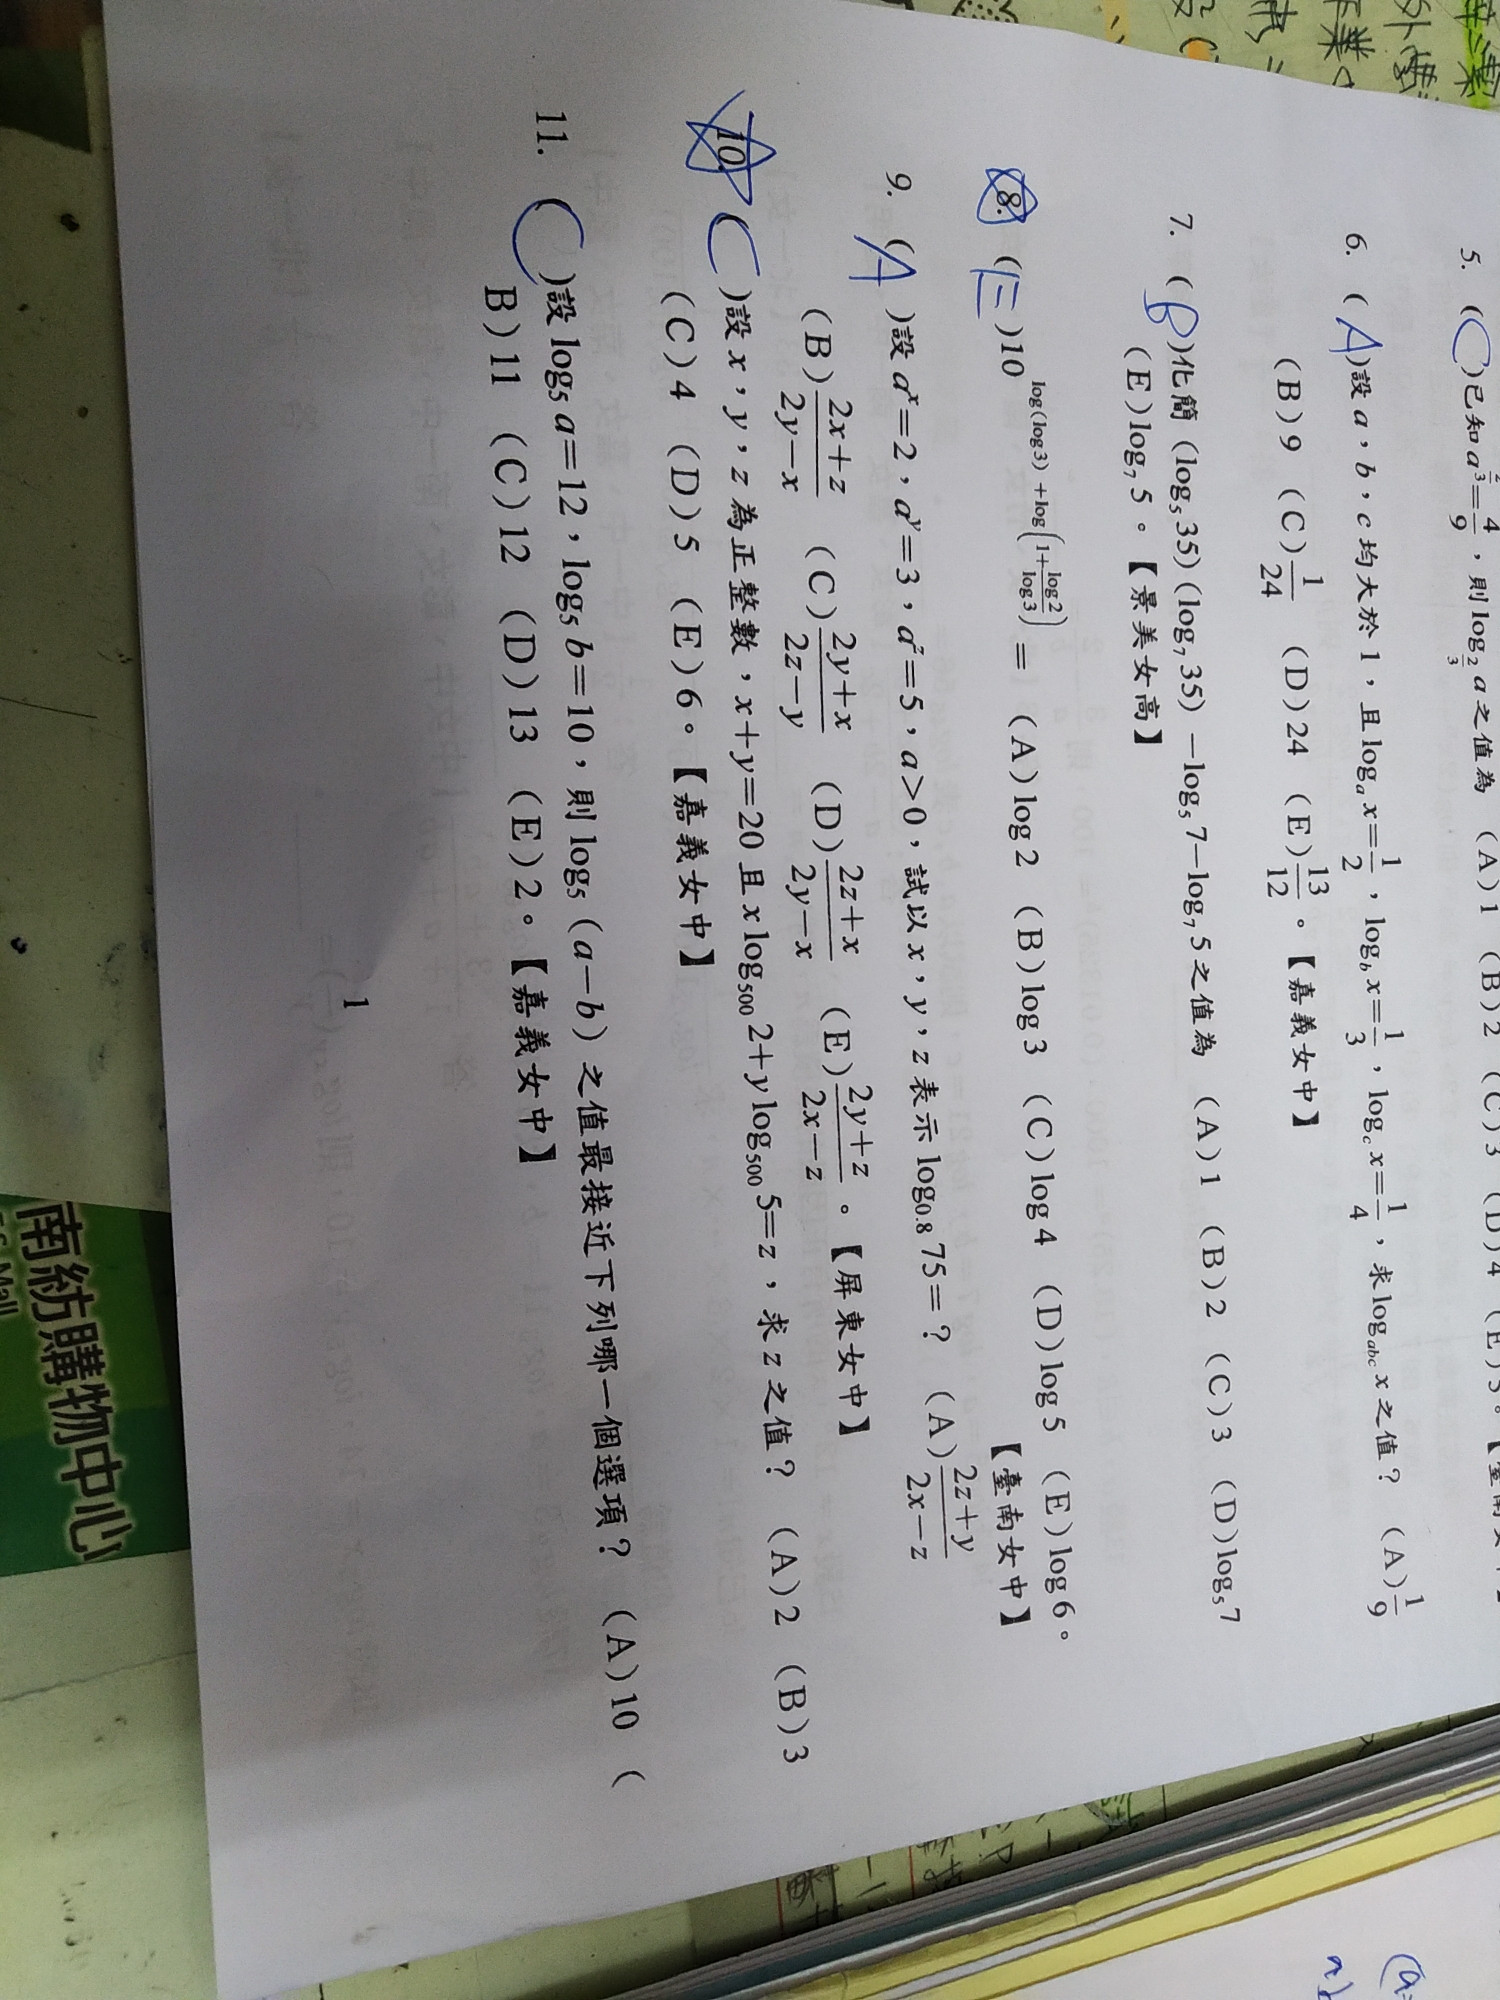 5. (C)已知a^{\frac{2}{3}}=\frac{4}{9}，則log_{\frac{2}{3}} a之值為 (A)1 (B)2 (C)3 (D)4 (E)5。
6. (A)設a，b，c均大於1，且log_a x=\frac{1}{2}，log_b x=\frac{1}{3}，log_c x=\frac{1}{4}，求log_{abc} x之值？ (A)\frac{1}{9}
(B)9 (C)\frac{1}{24} (D)24 (E)\frac{13}{12}。【嘉義女中】
7. (B)化簡(log_5 35)(log_7 35)－log_5 7－log_7 5之值為 (A)1 (B)2 (C)3 (D)log_5 7
(E)log_7 5。【景美女高】
8. (E)10^{log(log3)+log(1+\frac{log2}{log3})}＝ (A)log2 (B)log3 (C)log4 (D)log5 (E)log6。
【臺南女中】
9. (A)設a^x=2，a^y=3，a^z=5，a>0，試以x，y，z表示log_{0.8} 75=？ (A)\frac{2z+y}{2x-z}
(B)\frac{2x+z}{2y-x} (C)\frac{2y+x}{2z-y} (D)\frac{2z+x}{2y-x} (E)\frac{2y+z}{2x-z}。【屏東女中】
10. (C)設x，y，z為正整數，x+y=20且x log_{500} 2+y log_{500} 5=z，求z之值？ (A)2 (B)3
(C)4 (D)5 (E)6。【嘉義女中】
11. (C)設log_5 a=12，log_5 b=10，則log_5 (a-b)之值最接近下列哪一個選項？ (A)10 (
B)11 (C)12 (D)13 (E)2。【嘉義女中】
1
南紡購物中心